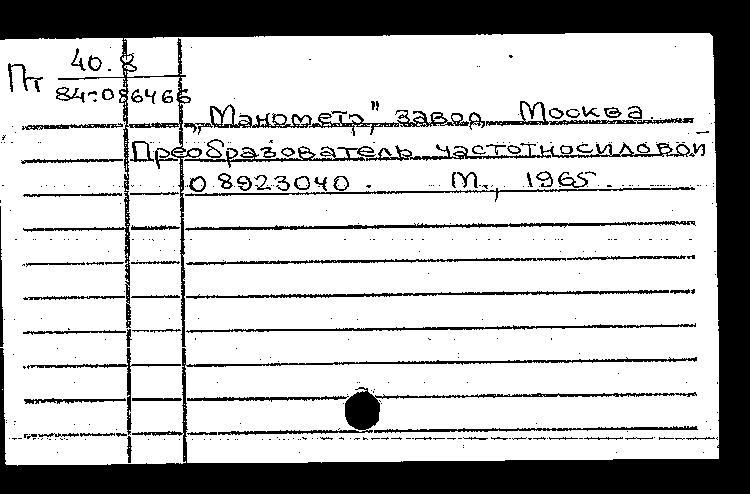 Пт 40.8
84-086466
„Манометр", завод, Москва.
Преобразователь частотносиловой
08923040. М., 1965.